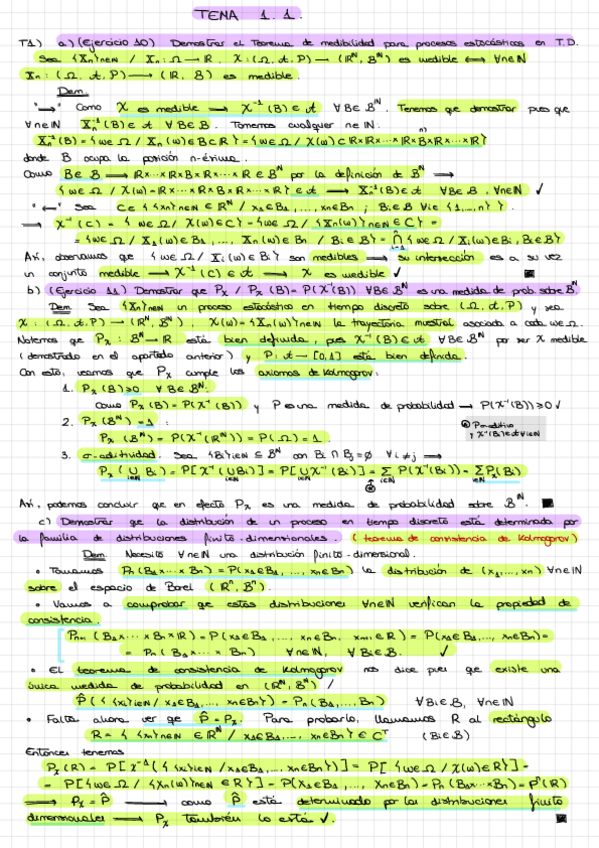 TEMA 1.1.
T1) a) (Ejercicio 10) Demostrar el Teorema de medibilidad para procesos estocásticos en T.D.
Sea {Xn}n∈ℕ / Xn: Ω → ℝ, X: (Ω, A, P) → (ℝ^ℕ, B^ℕ) es medible ⟺ ∀n∈ℕ
Xn: (Ω, A, P) → (ℝ, B) es medible.
Dem.
"→" Como X es medible → X⁻¹(B) ∈ A ∀B∈B^ℕ. Tenemos que demostrar pues que
∀n∈ℕ Xn⁻¹(B) ∈ A ∀B∈B. Tomemos cualquier n∈ℕ.
Xn⁻¹(B) = {ω∈Ω / Xn(ω) ∈ B ⊂ ℝ} = {ω∈Ω / X(ω) ⊂ ℝ×ℝ×···×ℝ×B×ℝ×···×ℝ}
n)
donde B ocupa la posición n-ésima.
Como B∈B → ℝ×···×ℝ×B×ℝ×···×ℝ ∈ B^ℕ por la definición de B^ℕ →
{ω∈Ω / X(ω) = ℝ×···×ℝ×B×ℝ×···×ℝ} ∈ A → Xn⁻¹(B) ∈ A ∀B∈B, ∀n∈ℕ ✓
"←" Sea C = {{xn}n∈ℕ ∈ ℝ^ℕ / x1∈B1, ..., xn∈Bn ; Bi∈B ∀i∈{1,...,n}}.
→ X⁻¹(C) = {ω∈Ω / X(ω) ∈ C} = {ω∈Ω / {Xn(ω)}n∈ℕ ∈ C} =
= {ω∈Ω / X1(ω)∈B1, ..., Xn(ω)∈Bn / Bi∈B} = ⋂ i=1 n {ω∈Ω / Xi(ω)∈Bi, Bi∈B}
Así, observamos que {ω∈Ω / Xi(ω)∈Bi} son medibles → su intersección es a su vez
un conjunto medible → X⁻¹(C) ∈ A → X es medible ✓
b) (Ejercicio 11) Demostrar que Px / Px(B) = P(X⁻¹(B)) ∀B∈B^ℕ es una medida de prob. sobre B^ℕ
Dem. Sea {Xn}n∈ℕ un proceso estocástico en tiempo discreto sobre (Ω, A, P) y sea
X: (Ω, A, P) → (ℝ^ℕ, B^ℕ), X(ω) = {Xn(ω)}n∈ℕ la trayectoria muestral asociada a cada ω∈Ω.
Notemos que Px: B^ℕ → ℝ está bien definida, pues X⁻¹(B) ∈ A ∀B∈B^ℕ por ser X medible
(demostrado en el apartado anterior) y P: A → [0,1] está bien definida.
Con esto, veamos que Px cumple los axiomas de Kolmogorov:
1. Px(B) ≥ 0 ∀B∈B^ℕ.
Como Px(B) = P(X⁻¹(B)) y P es una medida de probabilidad → P(X⁻¹(B)) ≥ 0 ✓
2. Px(B^ℕ) = 1 :
Px(B^ℕ) = P(X⁻¹(ℝ^ℕ)) = P(Ω) = 1.
P σ-aditiva
y X⁻¹(Bi)∈A ∀i∈ℕ
3. σ-aditividad. Sea {Bi}i∈ℕ ⊆ B^ℕ con Bi ∩ Bj = ∅ ∀i≠j →
Px(⋃ i∈ℕ Bi) = P[X⁻¹(⋃ i∈ℕ Bi)] = P[⋃ i∈ℕ X⁻¹(Bi)] = ∑ i∈ℕ P(X⁻¹(Bi)) = ∑ i∈ℕ Px(Bi)
Así, podemos concluir que en efecto Px es una medida de probabilidad sobre B^ℕ. ■
c) Demostrar que la distribución de un proceso en tiempo discreto está determinada por
la familia de distribuciones finito-dimensionales. (teorema de consistencia de Kolmogorov)
Dem. Necesito ∀n∈ℕ una distribución finito-dimensional.
• Tomamos Pn(B1×···×Bn) = P(x1∈B1, ..., xn∈Bn) la distribución de (x1,...,xn) ∀n∈ℕ
sobre el espacio de Borel (ℝ^n, B^n).
• Vamos a comprobar que estas distribuciones ∀n∈ℕ verifican la propiedad de
consistencia.
Pn+1(B1×···×Bn×ℝ) = P(x1∈B1, ..., xn∈Bn, xn+1∈ℝ) = P(x1∈B1, ..., xn∈Bn) =
= Pn(B1×···×Bn) ∀n∈ℕ, ∀Bi∈B. ✓
• El teorema de consistencia de Kolmogorov nos dice pues que existe una
única medida de probabilidad en (ℝ^ℕ, B^ℕ) /
P̂({{xi}i∈ℕ / x1∈B1, ..., xn∈Bn}) = Pn(B1, ..., Bn) ∀Bi∈B, ∀n∈ℕ
• Falta ahora ver que P̂ = Px. Para probarlo, llamamos R al rectángulo
R = {{xn}n∈ℕ ∈ ℝ^ℕ / x1∈B1, ..., xn∈Bn} ∈ C^T (Bi∈B)
Entonces tenemos
Px(R) = P[X⁻¹({{xi}i∈ℕ / x1∈B1, ..., xn∈Bn})] = P[{ω∈Ω / X(ω)∈R}] =
= P[{ω∈Ω / {Xn(ω)}n∈ℕ ∈ R}] = P(x1∈B1, ..., xn∈Bn) = Pn(B1×···×Bn) = P̂(R)
→ Px = P̂ → como P̂ está determinado por las distribuciones finito
dimensionales → Px también lo está ✓. ■